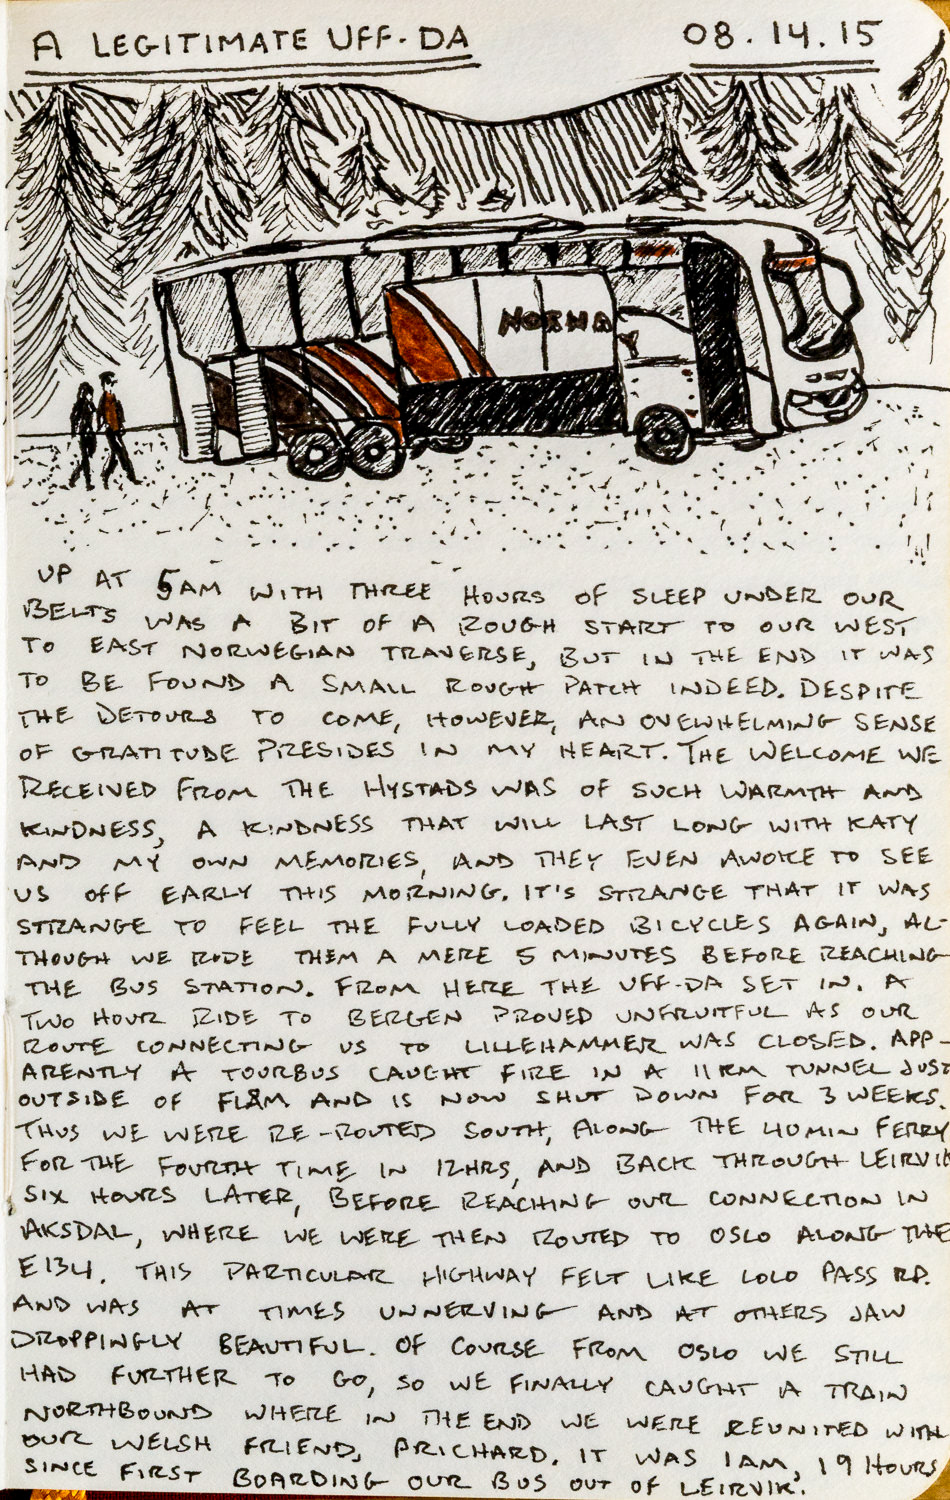 A LEGITIMATE UFF-DA
08.14.15
NORWA
UP AT 5AM WITH THREE HOURS OF SLEEP UNDER OUR
BELTS WAS A BIT OF A ROUGH START TO OUR WEST
TO EAST NORWEGIAN TRAVERSE, BUT IN THE END IT WAS
TO BE FOUND A SMALL ROUGH PATCH INDEED. DESPITE
THE DETOURS TO COME, HOWEVER, AN OVEWHELMING SENSE
OF GRATITUDE PRESIDES IN MY HEART. THE WELCOME WE
RECEIVED FROM THE HYSTADS WAS OF SUCH WARMTH AND
KINDNESS, A KINDNESS THAT WILL LAST LONG WITH KATY
AND MY OWN MEMORIES, AND THEY EVEN AWOKE TO SEE
US OFF EARLY THIS MORNING. IT'S STRANGE THAT IT WAS
STRANGE TO FEEL THE FULLY LOADED BICYCLES AGAIN, AL-
THOUGH WE RODE THEM A MERE 5 MINUTES BEFORE REACHING
THE BUS STATION. FROM HERE THE UFF-DA SET IN. A
TWO HOUR RIDE TO BERGEN PROVED UNFRUITFUL AS OUR
ROUTE CONNECTING US TO LILLEHAMMER WAS CLOSED. APP-
ARENTLY A TOURBUS CAUGHT FIRE IN A 11KM TUNNEL JUST
OUTSIDE OF FLÅM AND IS NOW SHUT DOWN FOR 3 WEEKS.
THUS WE WERE RE-ROUTED SOUTH, ALONG THE 40MIN FERRY
FOR THE FOURTH TIME IN 12HRS, AND BACK THROUGH LEIRVIK
SIX HOURS LATER, BEFORE REACHING OUR CONNECTION IN
AKSDAL, WHERE WE WERE THEN ROUTED TO OSLO ALONG THE
E134. THIS PARTICULAR HIGHWAY FELT LIKE LOLO PASS RD.
AND WAS AT TIMES UNNERVING AND AT OTHERS JAW
DROPPINGLY BEAUTIFUL. OF COURSE FROM OSLO WE STILL
HAD FURTHER TO GO, SO WE FINALLY CAUGHT A TRAIN
NORTHBOUND WHERE IN THE END WE WERE REUNITED WITH
OUR WELSH FRIEND, PRICHARD. IT WAS 1AM, 19 HOURS
SINCE FIRST BOARDING OUR BUS OUT OF LEIRVIK.